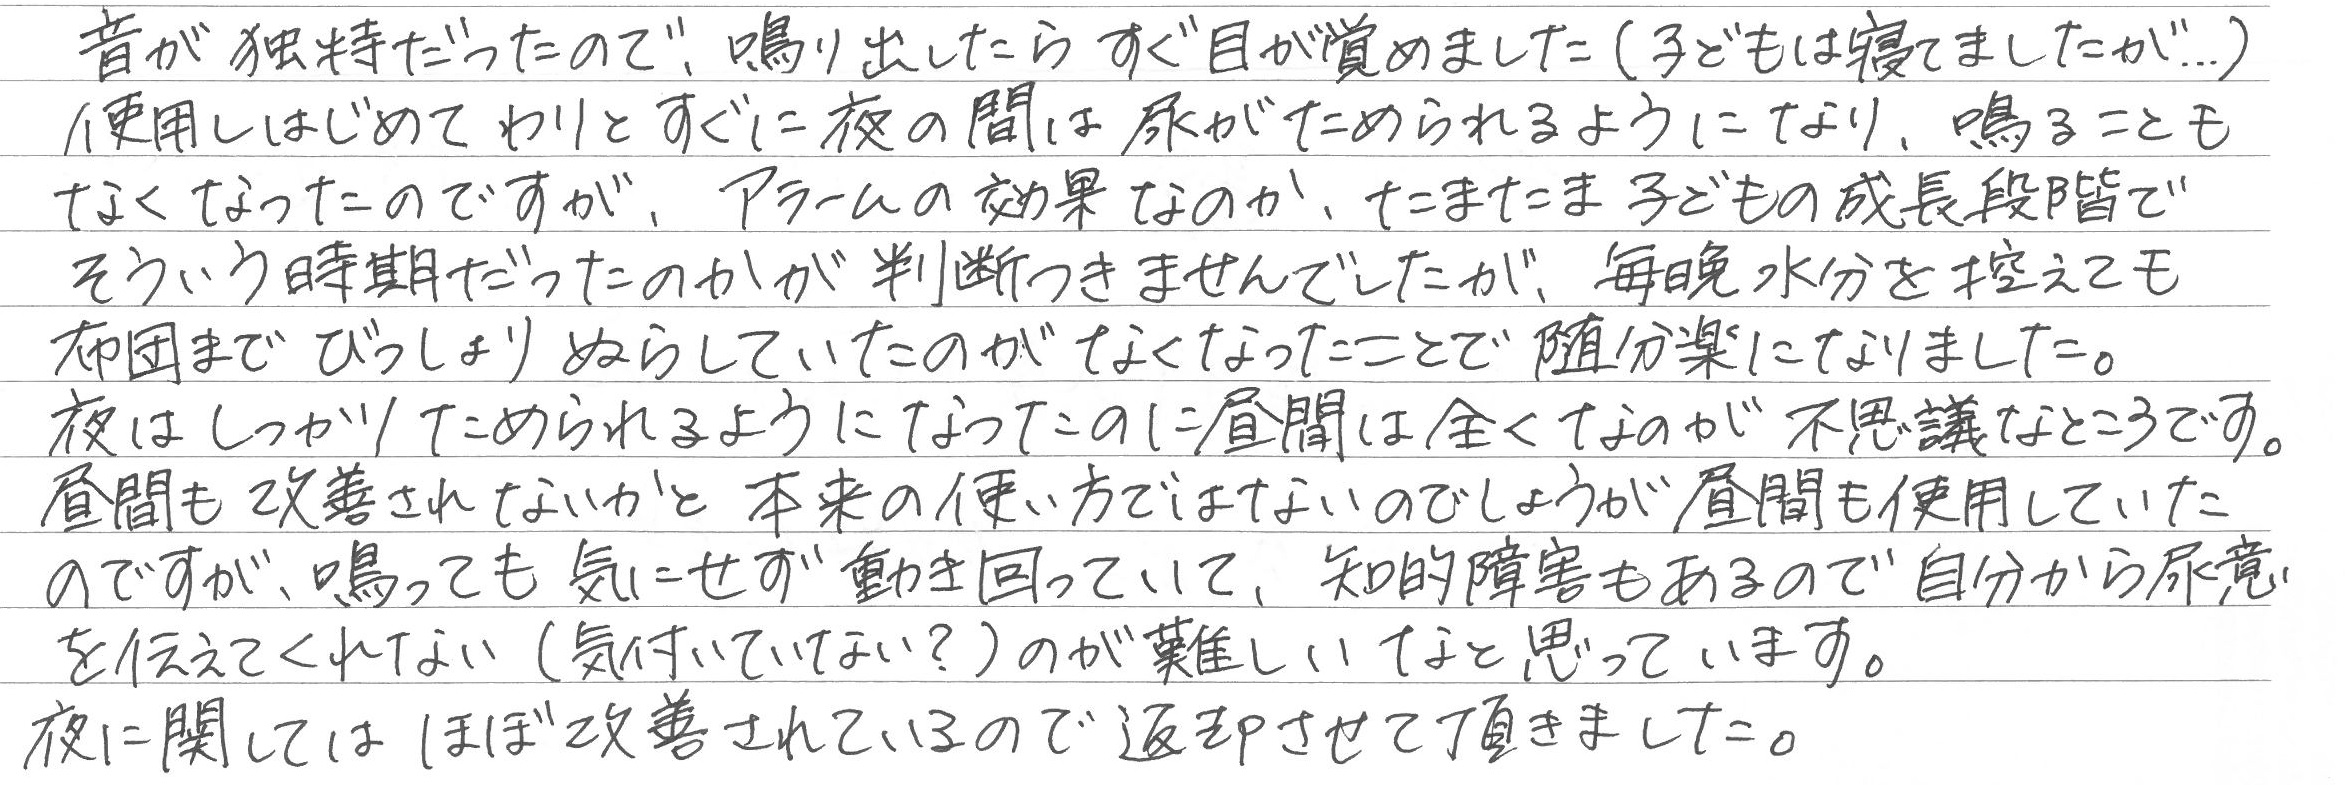 音が独特だったので、鳴り出したらすぐ目が覚めました(子どもは寝てましたが…)
使用しはじめてわりとすぐに夜の間は尿がためられるようになり、鳴ることも
なくなったのですが、アラームの効果なのか、たまたま子どもの成長段階で
そういう時期だったのかが判断つきませんでしたが、毎晩水分を控えても
布団までびっしょりぬらしていたのがなくなったことで随分楽になりました。
夜はしっかりためられるようになったのに昼間は全くなのが不思議なところです。
昼間も改善されないかと本来の使い方ではないのでしょうが昼間も使用していた
のですが、鳴っても気にせず動き回っていて、知的障害もあるので自分から尿意
を伝えてくれない(気付いていない?)のが難しいなと思っています。
夜に関してはほぼ改善されているので返却させて頂きました。